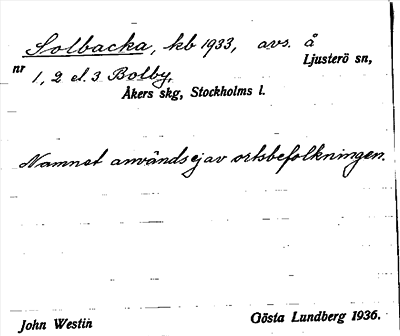 Solbacka, kb 1933, avs. å
Ljusterö sn,
nr 1, 2 el. 3 Bolby,
Åkers skg, Stockholms l.
Namnet användsej av ortsbefolkningen.
John Westin
Gösta Lundberg 1936.